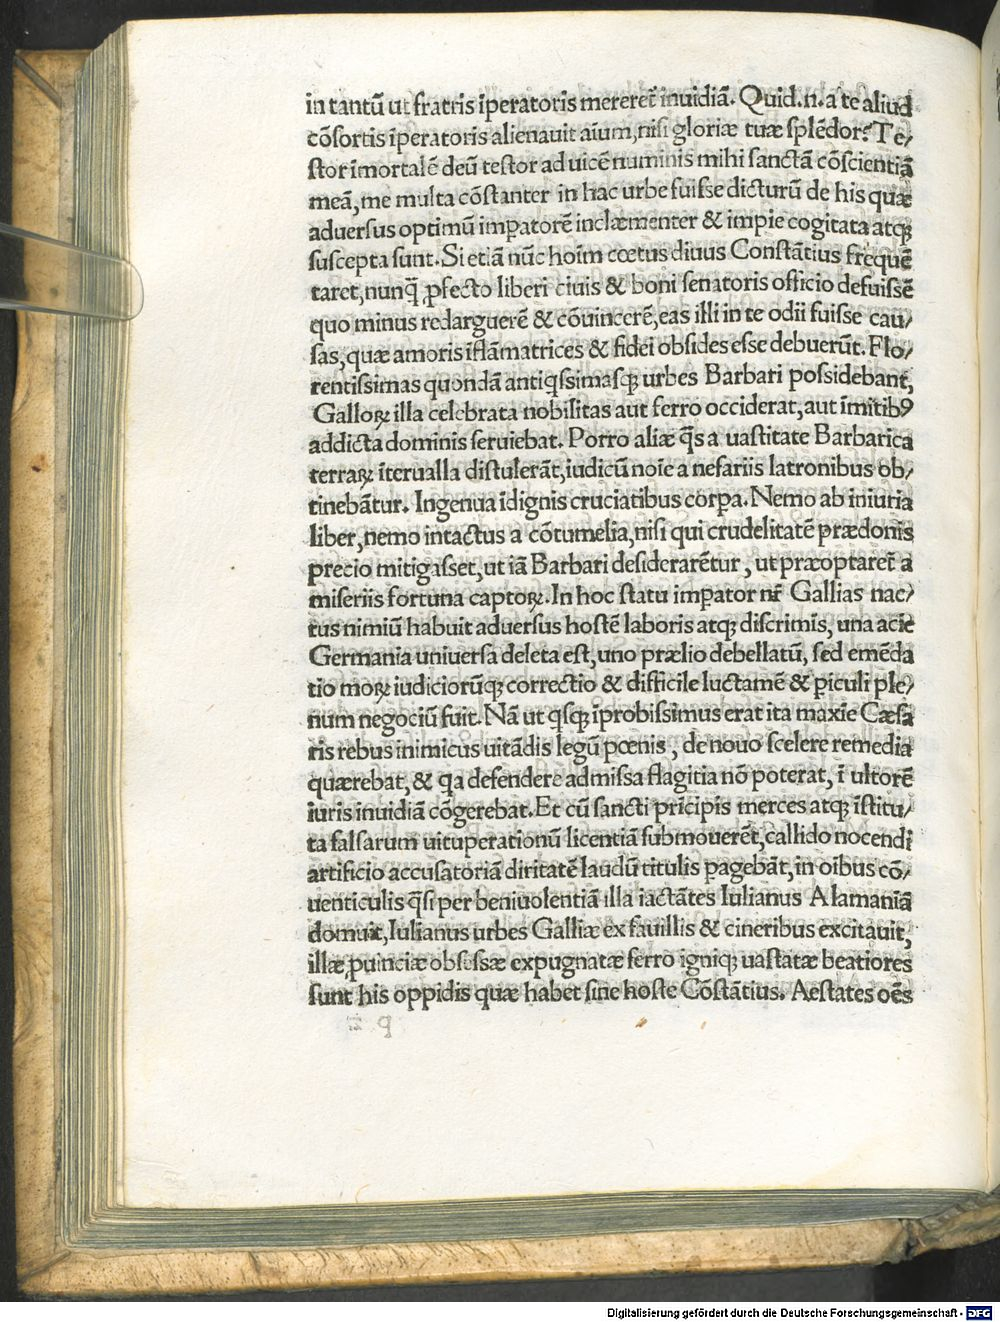 in tantū ut fratris īperatoris mereret̄ inuidiā. Quid.n. a te aliud
cōsortis īperatoris alienauit aīum, nisi gloriæ tuæ splēdor? Te/
stor īmortalē deū testor ad uicē numinis mihi sanctā cōscientiā
meā, me multa cōstanter in hac urbe fuisse dicturū de his quæ
aduersus optimū imꝑatorē inclæmenter & impie cogitata atqꝫ
suscepta sunt. Si etiā nūc hoīm cœtus diuus Constātius frequē
taret, nunq̄ ꝓfecto liberi ciuis & boni senatoris officio defuissē
quo minus redarguerē & cōuincerē, eas illi in te odii fuisse cau/
sas, quæ amoris īflāmatrices & fidei obsides esse debuerūt. Flo/
rentissimas quondā antiqssimasqꝫ urbes Barbari possidebant,
Galloꝝ illa celebrata nobilitas aut ferro occiderat, aut īmitibꝰ
addicta dominis seruiebat. Porro aliæ q̄s a uastitate Barbarica
terraꝝ īterualla distulerāt, iudicū noīe a nefariis latronibus ob/
tinebātur. Ingenua īdignis cruciatibus corꝑa. Nemo ab iniuria
liber, nemo intactus a cōtumelia, nisi qui crudelitatē prædonis
precio mitigasset, ut iā Barbari desiderarētur, ut præoptaret̄ a
miseriis fortuna captoꝝ. In hoc statu imꝑator nr̄ Gallias nac/
tus nimiū habuit aduersus hostē laboris atqꝫ discrimīs, una acie
Germania uniuersa deleta est, uno prælio debellatū, sed emēda
tio moꝝ iudiciorūqꝫ correctio & difficile luctamē & ꝑiculi ple/
num negociū fuit. Nā ut qsqꝫ īprobissimus erat ita maxīe Cæsa
ris rebus inimicus uitādis legū pœnis, de nouo scelere remedia
quærebat, & qa defendere admissa flagitia nō poterat, ī ultorē
iuris inuidiā cōgerebat. Et cū sancti prīcipis merces atqꝫ īstitu/
ta falsarum uituperationū licentiā submouerēt, callido nocendi
artificio accusatoriā diritatē laudū titulis ꝑagebāt, in oībus cō/
uenticulis q̄si per beniuolentiā illa iactātes Iulianus Alamaniā
domuit, Iulianus urbes Galliæ ex fauillis & cineribus excitauit,
illæ ꝓuinciæ obsessæ expugnatæ ferro igniqꝫ uastatæ beatiores
sunt his oppidis quæ habet sine hoste Cōstātius. Aestates oēs
Digitalisierung gefördert durch die Deutsche Forschungsgemeinschaft - DFG